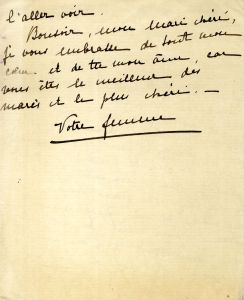 l'aller voir.
Bonsoir, mon mari chéri,
je vous embrasse de tout mon
cœur et de tte mon âme, car
vous êtes le meilleur des
maris et le plus chéri. —
Votre femme